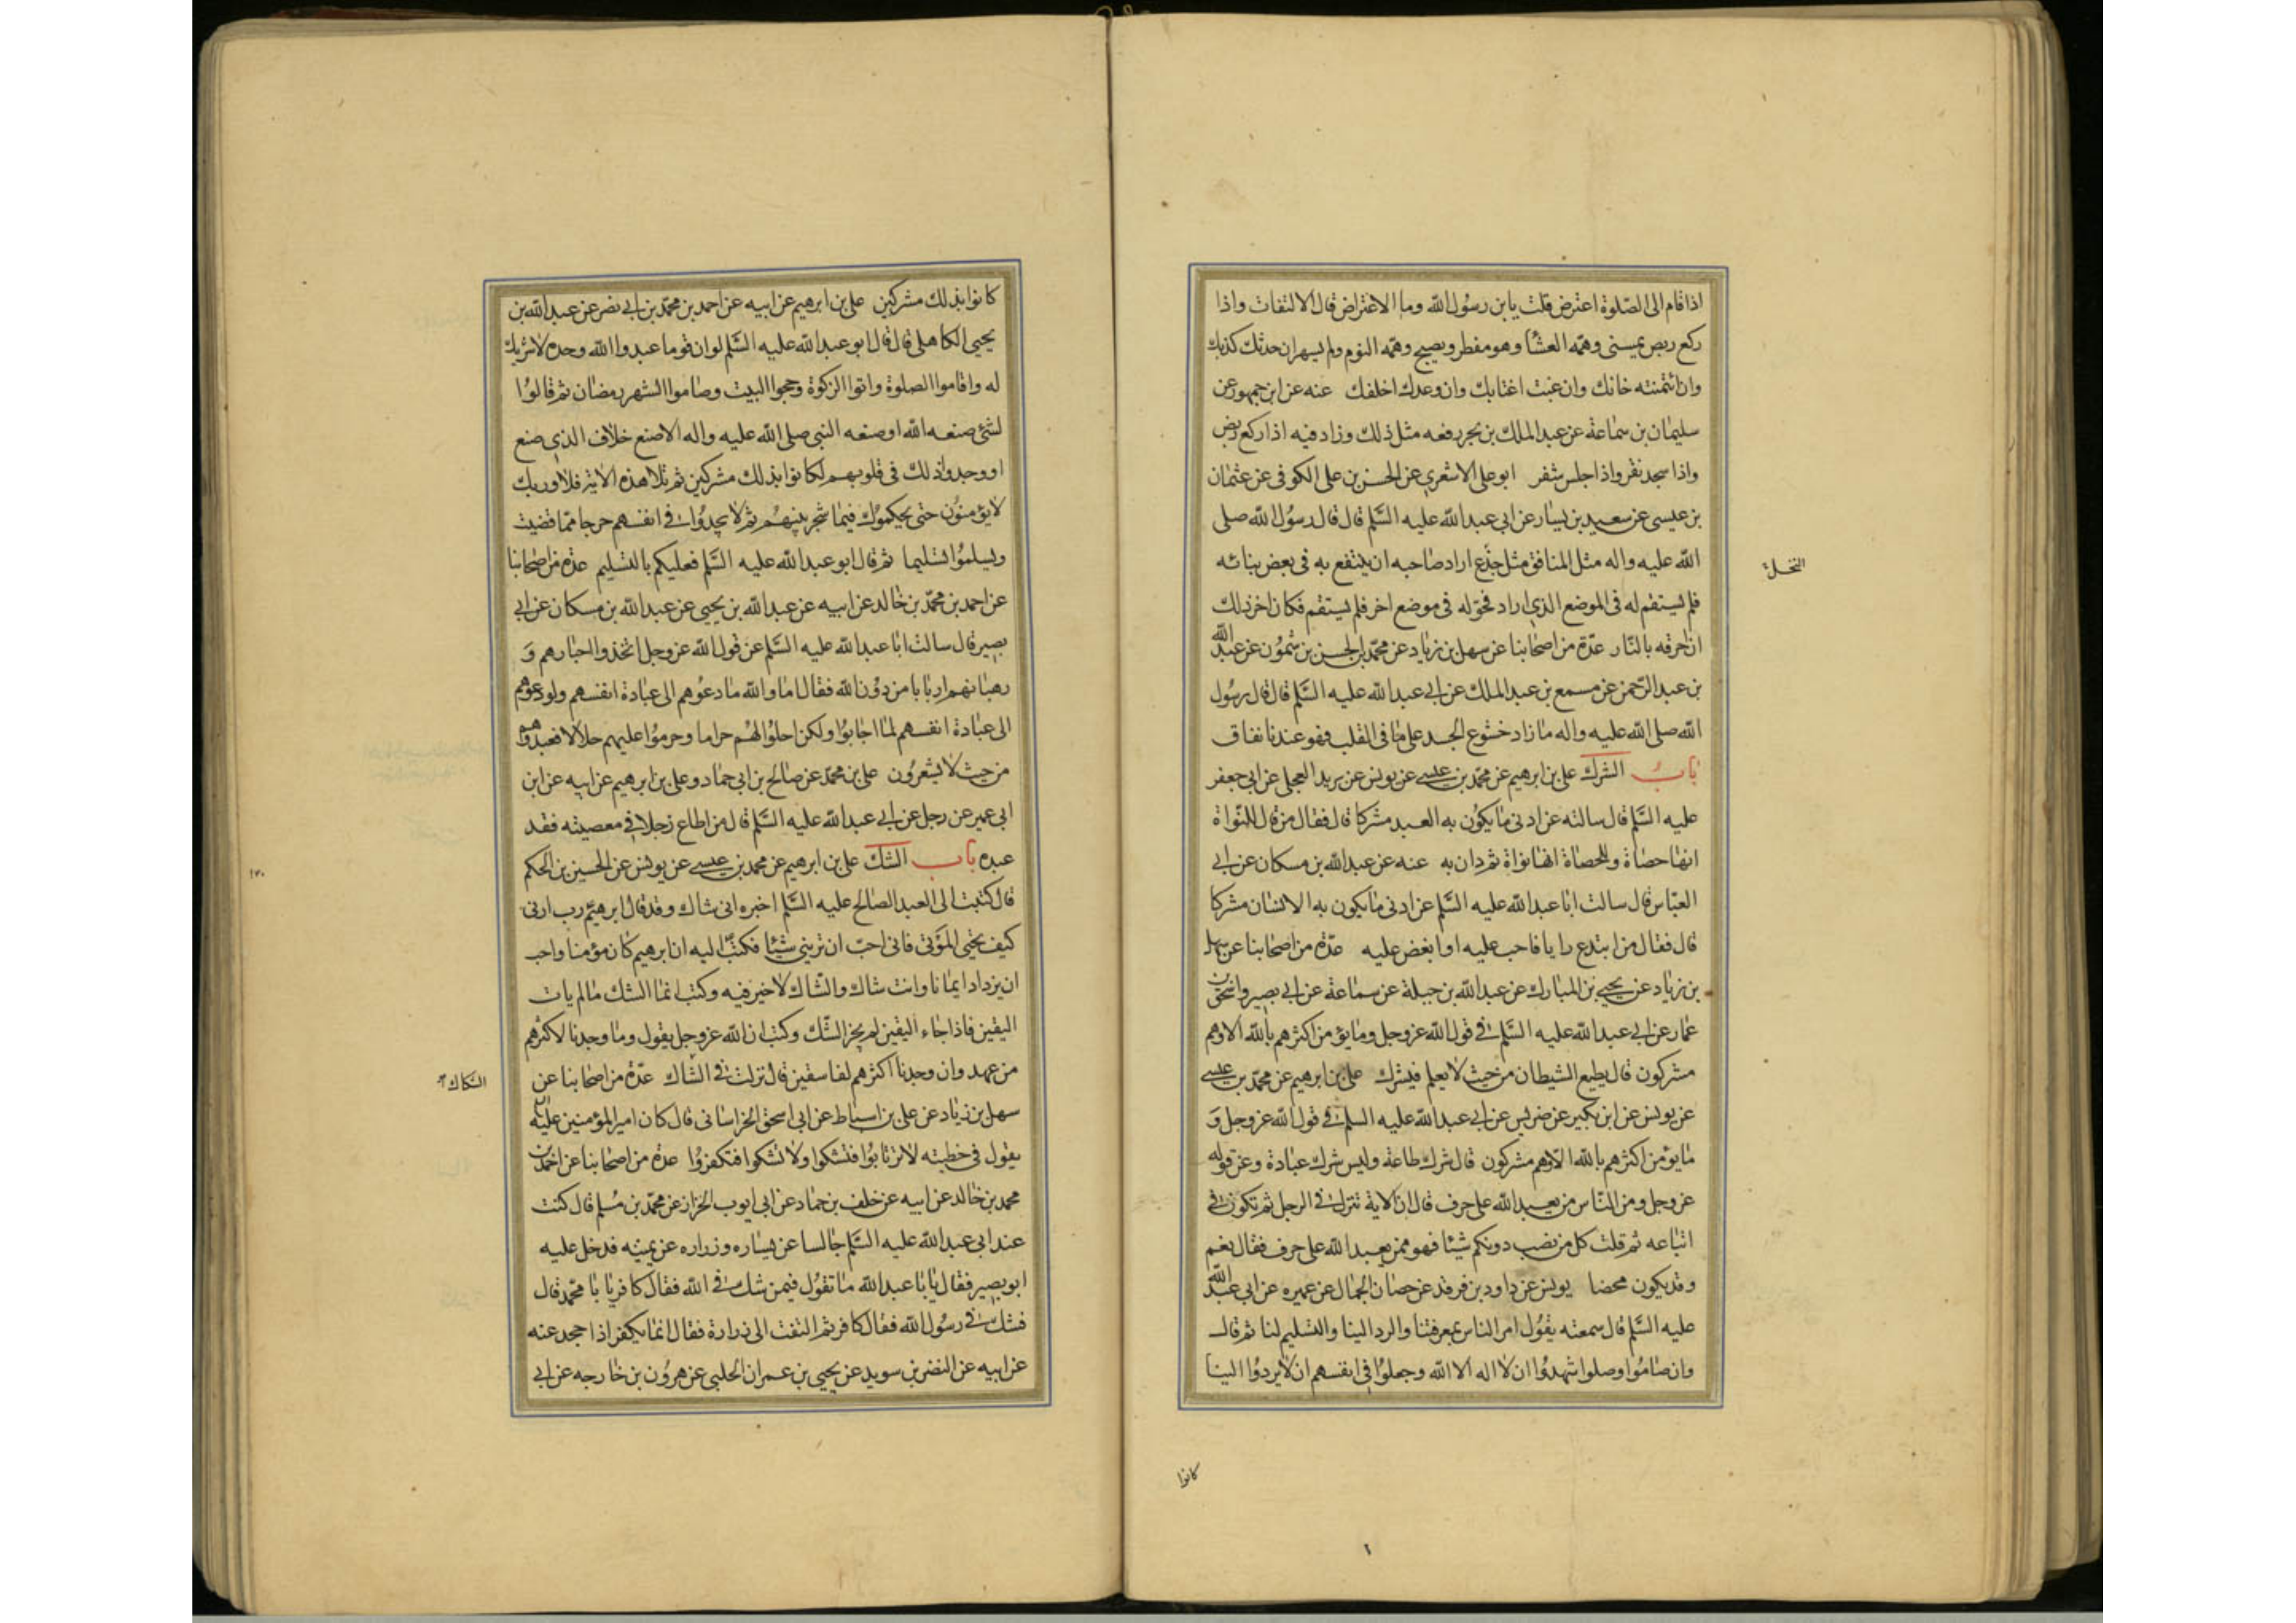 اذا قام الى الصلوة اعترض قلت يابن رسول الله وما الاعتراض قال الالتفات واذا
ركع ربض يمسنى وهمه العشا وهو مفطر ويصبح وهمه النوم ولم يسهر ان حدثك كذبك
وان ائتمنته خانك وان غبت اغتابك وان وعدك اخلفك عنه عن ابن جمهور عن
سليمان بن سماعة عن عبد الملك بن بحر رفعه مثل ذلك وزاد فيه اذا ركع ربض
واذا سجد نقر واذا جلس شغر ابو على الاشعري عن الحسن بن على الكوفى عن عثمان
بن عيسى عن سعيد بن يسار عن ابى عبد الله عليه السلم قال قال رسول الله صلى
الله عليه واله مثل المنافق مثل جذع اراد صاحبه ان ينتفع به فى بعض بنائه
النخل
فلم يستقم له فى الموضع الذي اراد فحوله فى موضع اخر فلم يستقم فكان اخر ذلك
ان احرقه بالنار عدة من اصحابنا عن سهل بن زياد عن محمد بن الحسن بن شمون عن عبد الله
بن عبد الرحمن عن مسمع بن عبد الملك عن ابى عبد الله عليه السلم قال قال رسول
الله صلى الله عليه واله ما زاد خشوع الجسد على ما فى القلب فهو عندنا نفاق
باب الشرك على بن ابرهيم عن محمد بن عيسى عن يونس عن بريد العجلى عن ابى جعفر
عليه السلم قال سالته عن ادنى ما يكون به العبد مشركا قال فقال من قال للنواة
انها حصاة وللحصاة انها نواة ثم دان به عنه عن عبد الله بن مسكان عن ابى
العباس قال سالت ابا عبد الله عليه السلم عن ادنى ما يكون به الانسان مشركا
قال فقال من ابتدع رايا فاحب عليه او ابغض عليه عدة من اصحابنا عن سهل
بن زياد عن يحيى بن المبارك عن عبد الله بن جبلة عن سماعة عن ابى بصير واسحق بن
عمار عن ابى عبد الله عليه السلم فى قول الله عز وجل وما يؤمن اكثرهم بالله الا وهم
مشركون قال يطيع الشيطان من حيث لا يعلم فيشرك على بن ابرهيم عن محمد بن عيسى
عن يونس عن ابن بكير عن ضريس عن ابى عبد الله عليه السلم فى قول الله عز وجل و
ما يؤمن اكثرهم بالله الا وهم مشركون قال شرك طاعة وليس شرك عبادة وعن قوله
عز وجل ومن الناس من يعبد الله على حرف قال ان الاية تنزل فى الرجل ثم تكون فى
اتباعه ثم قلت كل من نصب دونكم شيئا فهو ممن يعبد الله على حرف فقال نعم
وقد يكون محضا يونس عن داود بن فرقد عن حسان الجمال عن عميره عن ابى عبد الله
عليه السلم قال سمعته يقول امر الناس بمعرفتنا والرد الينا والتسليم لنا ثم قال
وان صاموا وصلوا وشهدوا ان لا اله الا الله وجعلوا فى انفسهم ان لا يردوا الينا
كانوا
كانوا بذلك مشركين على بن ابرهيم عن ابيه عن احمد بن محمد بن ابى نصر عن عبد الله بن
يحيى الكاهلى قال قال ابو عبد الله عليه السلم لو ان قوما عبدوا الله وحده لا شريك
له واقاموا الصلوة واتوا الزكوة وحجوا البيت وصاموا الشهر رمضان ثم قالوا
لشئ صنعه الله او صنعه النبى صلى الله عليه واله الا صنع خلاف الذي صنع
او وجدوا ذلك فى قلوبهم لكانوا بذلك مشركين ثم تلا هذه الاية فلا وربك
لا يؤمنون حتى يحكموك فيما شجر بينهم ثم لا يجدوا فى انفسهم حرجا مما قضيت
ويسلموا تسليما ثم قال ابو عبد الله عليه السلم فعليكم بالتسليم عدة من اصحابنا
عن احمد بن محمد بن خالد عن ابيه عن عبد الله بن يحيى عن عبد الله بن مسكان عن ابى
بصير قال سالت ابا عبد الله عليه السلم عن قول الله عز وجل اتخذوا احبارهم و
رهبانهم اربابا من دون الله فقال اما والله ما دعوهم الى عبادة انفسهم ولو دعوهم
الى عبادة انفسهم لما اجابوا ولكن احلوا لهم حراما وحرموا عليهم حلالا فعبدوهم
من حيث لا يشعرون على بن محمد عن صالح بن ابى حماد وعلى بن ابرهيم عن ابيه عن ابن
ابى عمير عن رجل عن ابى عبد الله عليه السلم قال من اطاع رجلا فى معصيته فقد
عبده باب الشك على بن ابرهيم عن محمد بن عيسى عن يونس عن الحسين بن الحكم
قال كتبت الى العبد الصالح عليه السلم اخبره انى شاك وقد قال ابرهيم رب ارنى
كيف تحيى الموتى فانى احب ان ترينى شيئا فكتب اليه ان ابرهيم كان مؤمنا واحب
ان يزداد ايمانا وانت شاك والشاك لا خير فيه وكتب انما الشك ما لم يات
اليقين فاذا جاء اليقين لم يجز الشك وكتب ان الله عز وجل يقول وما وجدنا لاكثرهم
من عهد وان وجدنا اكثرهم لفاسقين قال نزلت فى الشاك عدة من اصحابنا عن
سهل بن زياد عن على بن اسباط عن ابى اسحق الخراسانى قال كان امير المؤمنين عليه
يقول فى خطبته لا ترتابوا فتشكوا ولا تشكوا فتكفروا عدة من اصحابنا عن احمد بن
محمد بن خالد عن ابيه عن خلف بن حماد عن ابى ايوب الخزاز عن محمد بن مسلم قال كنت
عند ابى عبد الله عليه السلم جالسا عن يساره وزراره عن يمينه فدخل عليه
ابو بصير فقال يا با عبد الله ما تقول فيمن شك فى الله فقال كافر يا با محمد قال
فشك فى رسول الله فقال كافر ثم التفت الى زرارة فقال انما يكفر اذا جحد عنه
عن ابيه عن النضر بن سويد عن يحيى بن عمران الحلبى عن هرون بن خارجه عن ابى